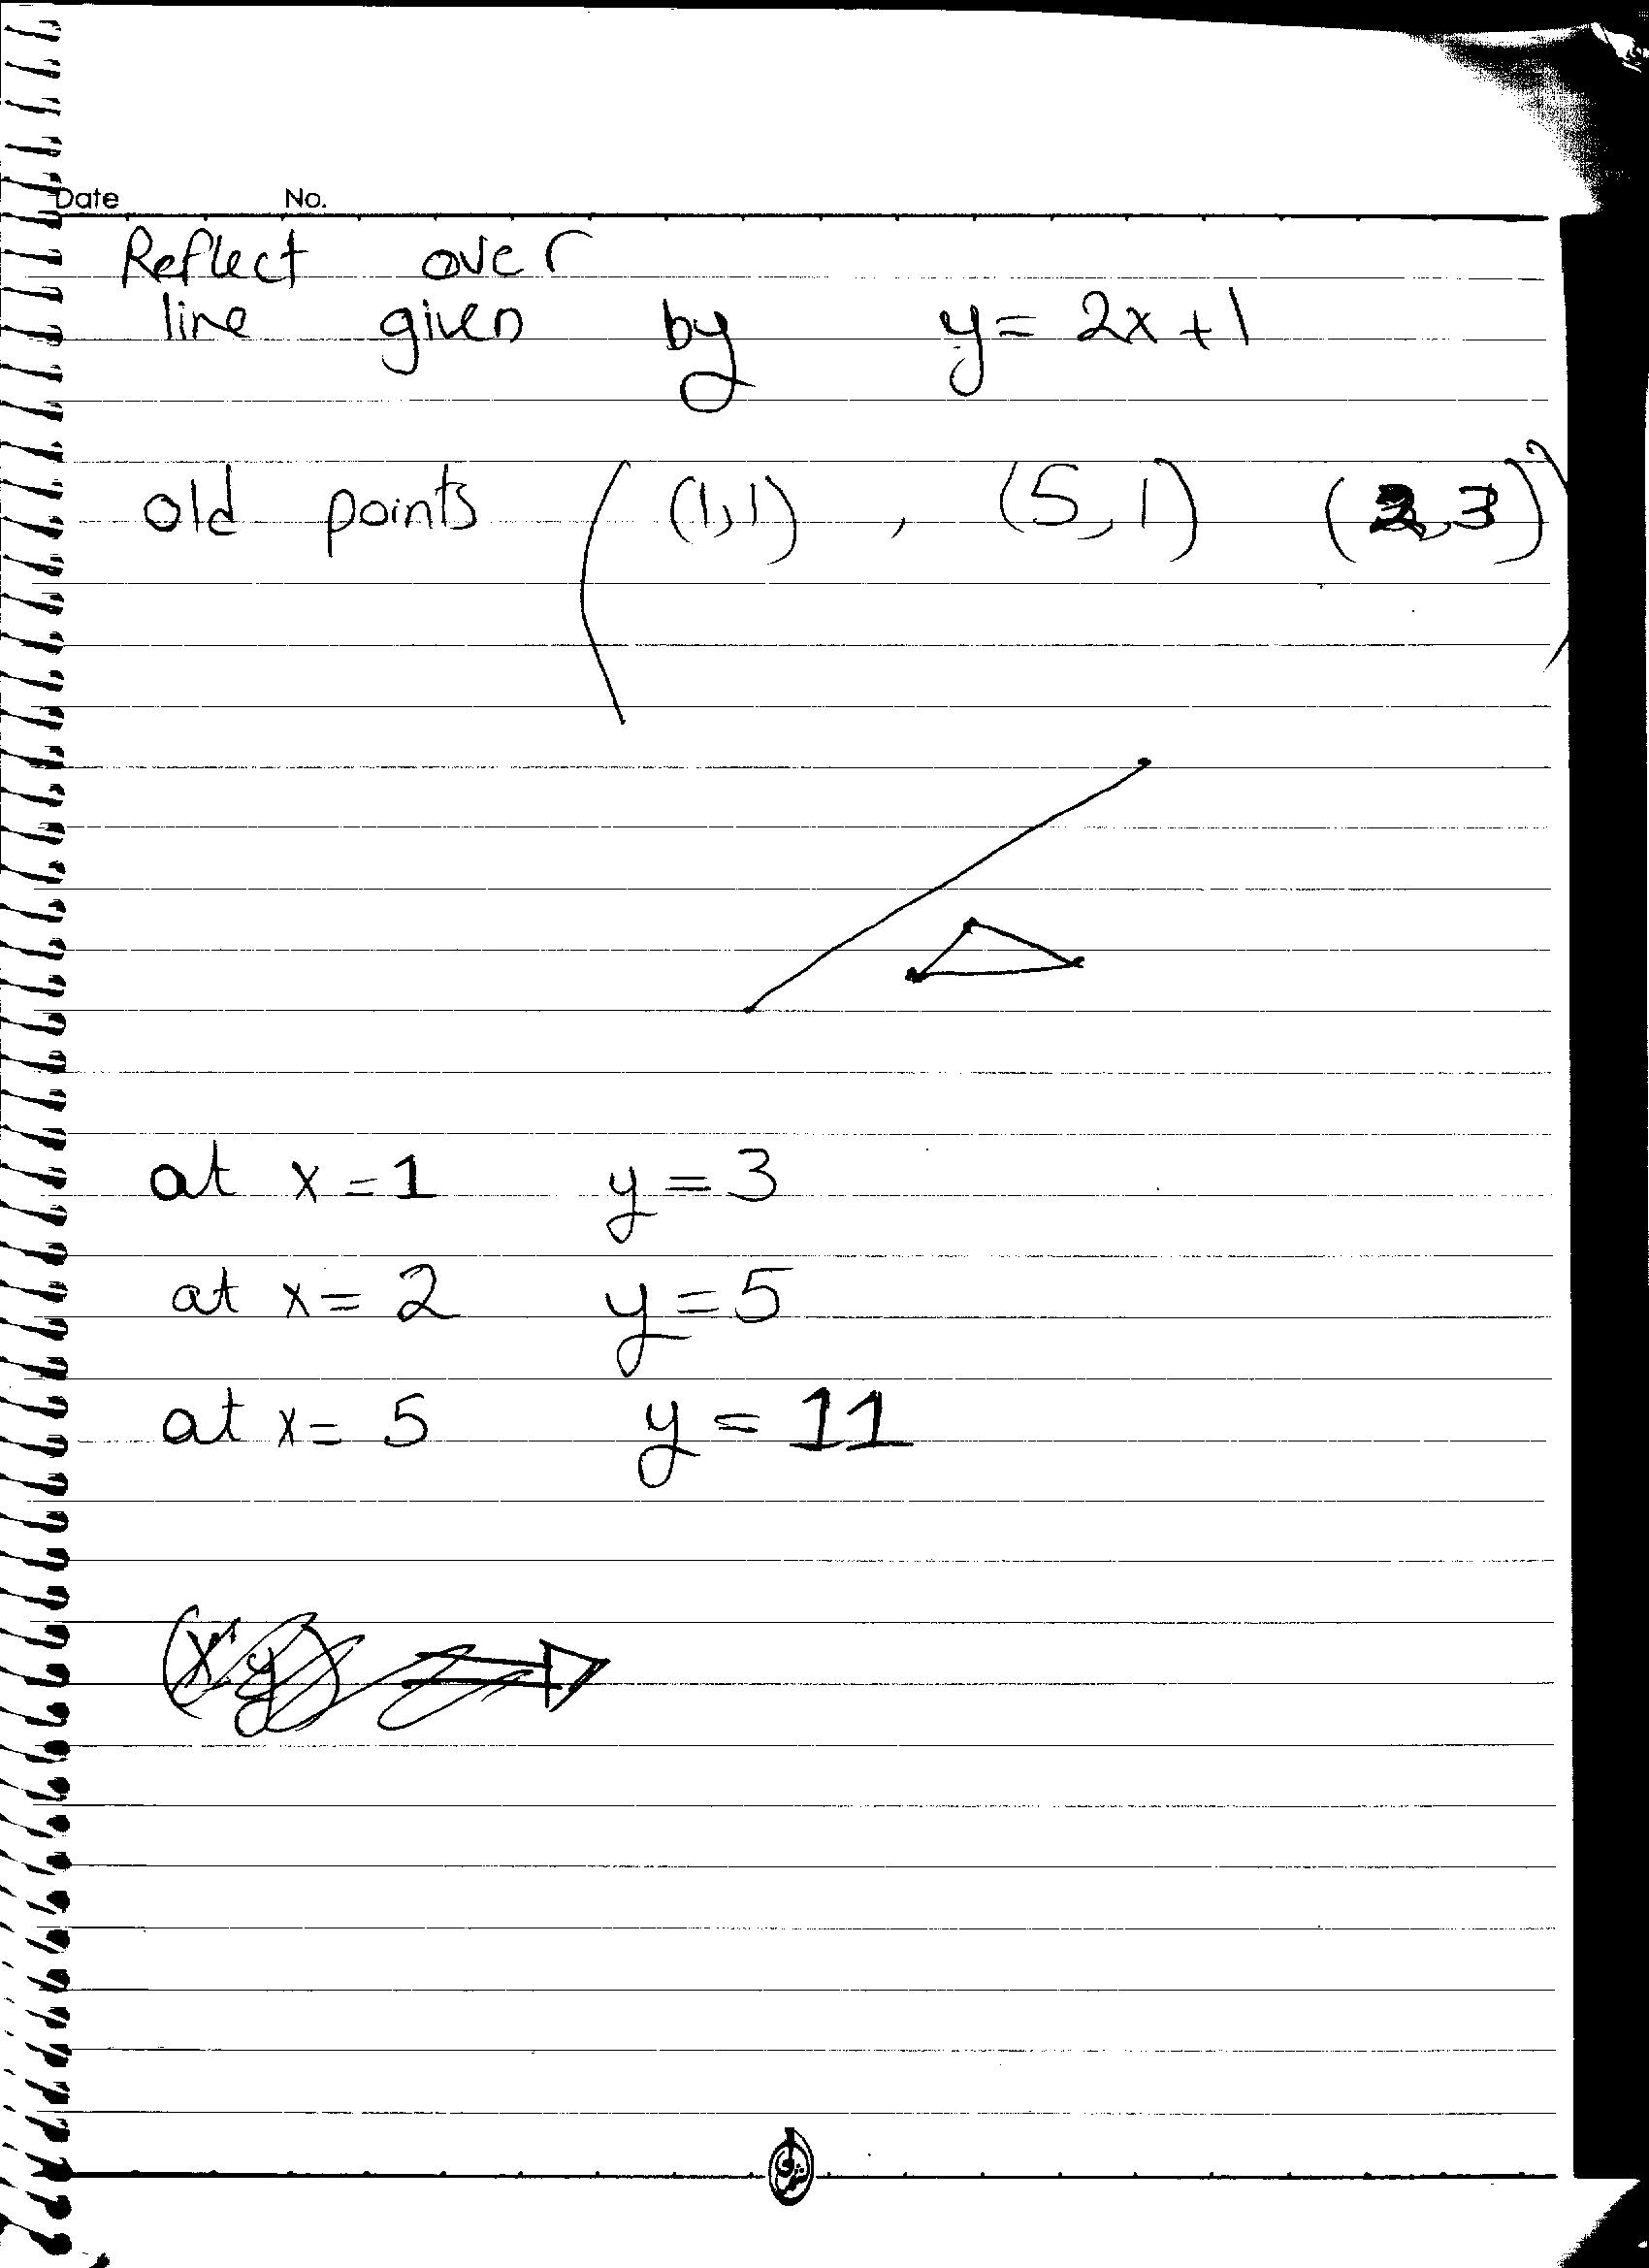 Date No.
Reflect over
line given by y = 2x + 1
old points ( (1,1) , (5,1) (2,3) )
at x = 1 y = 3
at x = 2 y = 5
at x = 5 y = 11
(x, y)